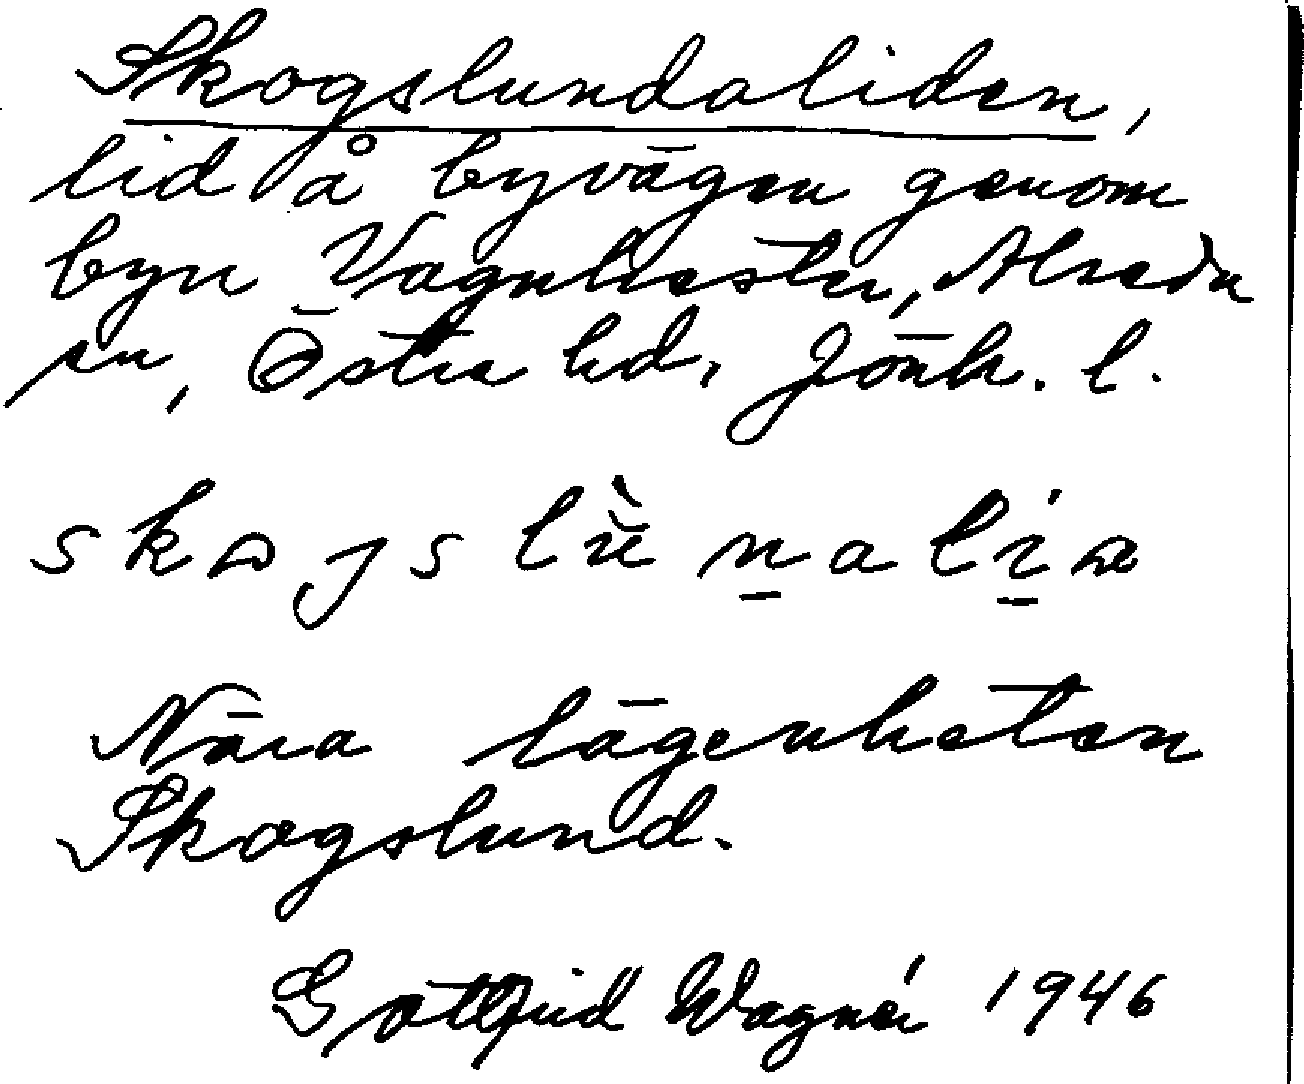 Skogslundaliden,
lid å byvägen genom
byn Vagnhester, Alseda
sn, Östra hd, Jönk. l.
Nära lägenheten
Skogslund.
Gottfrid Wagnér 1946